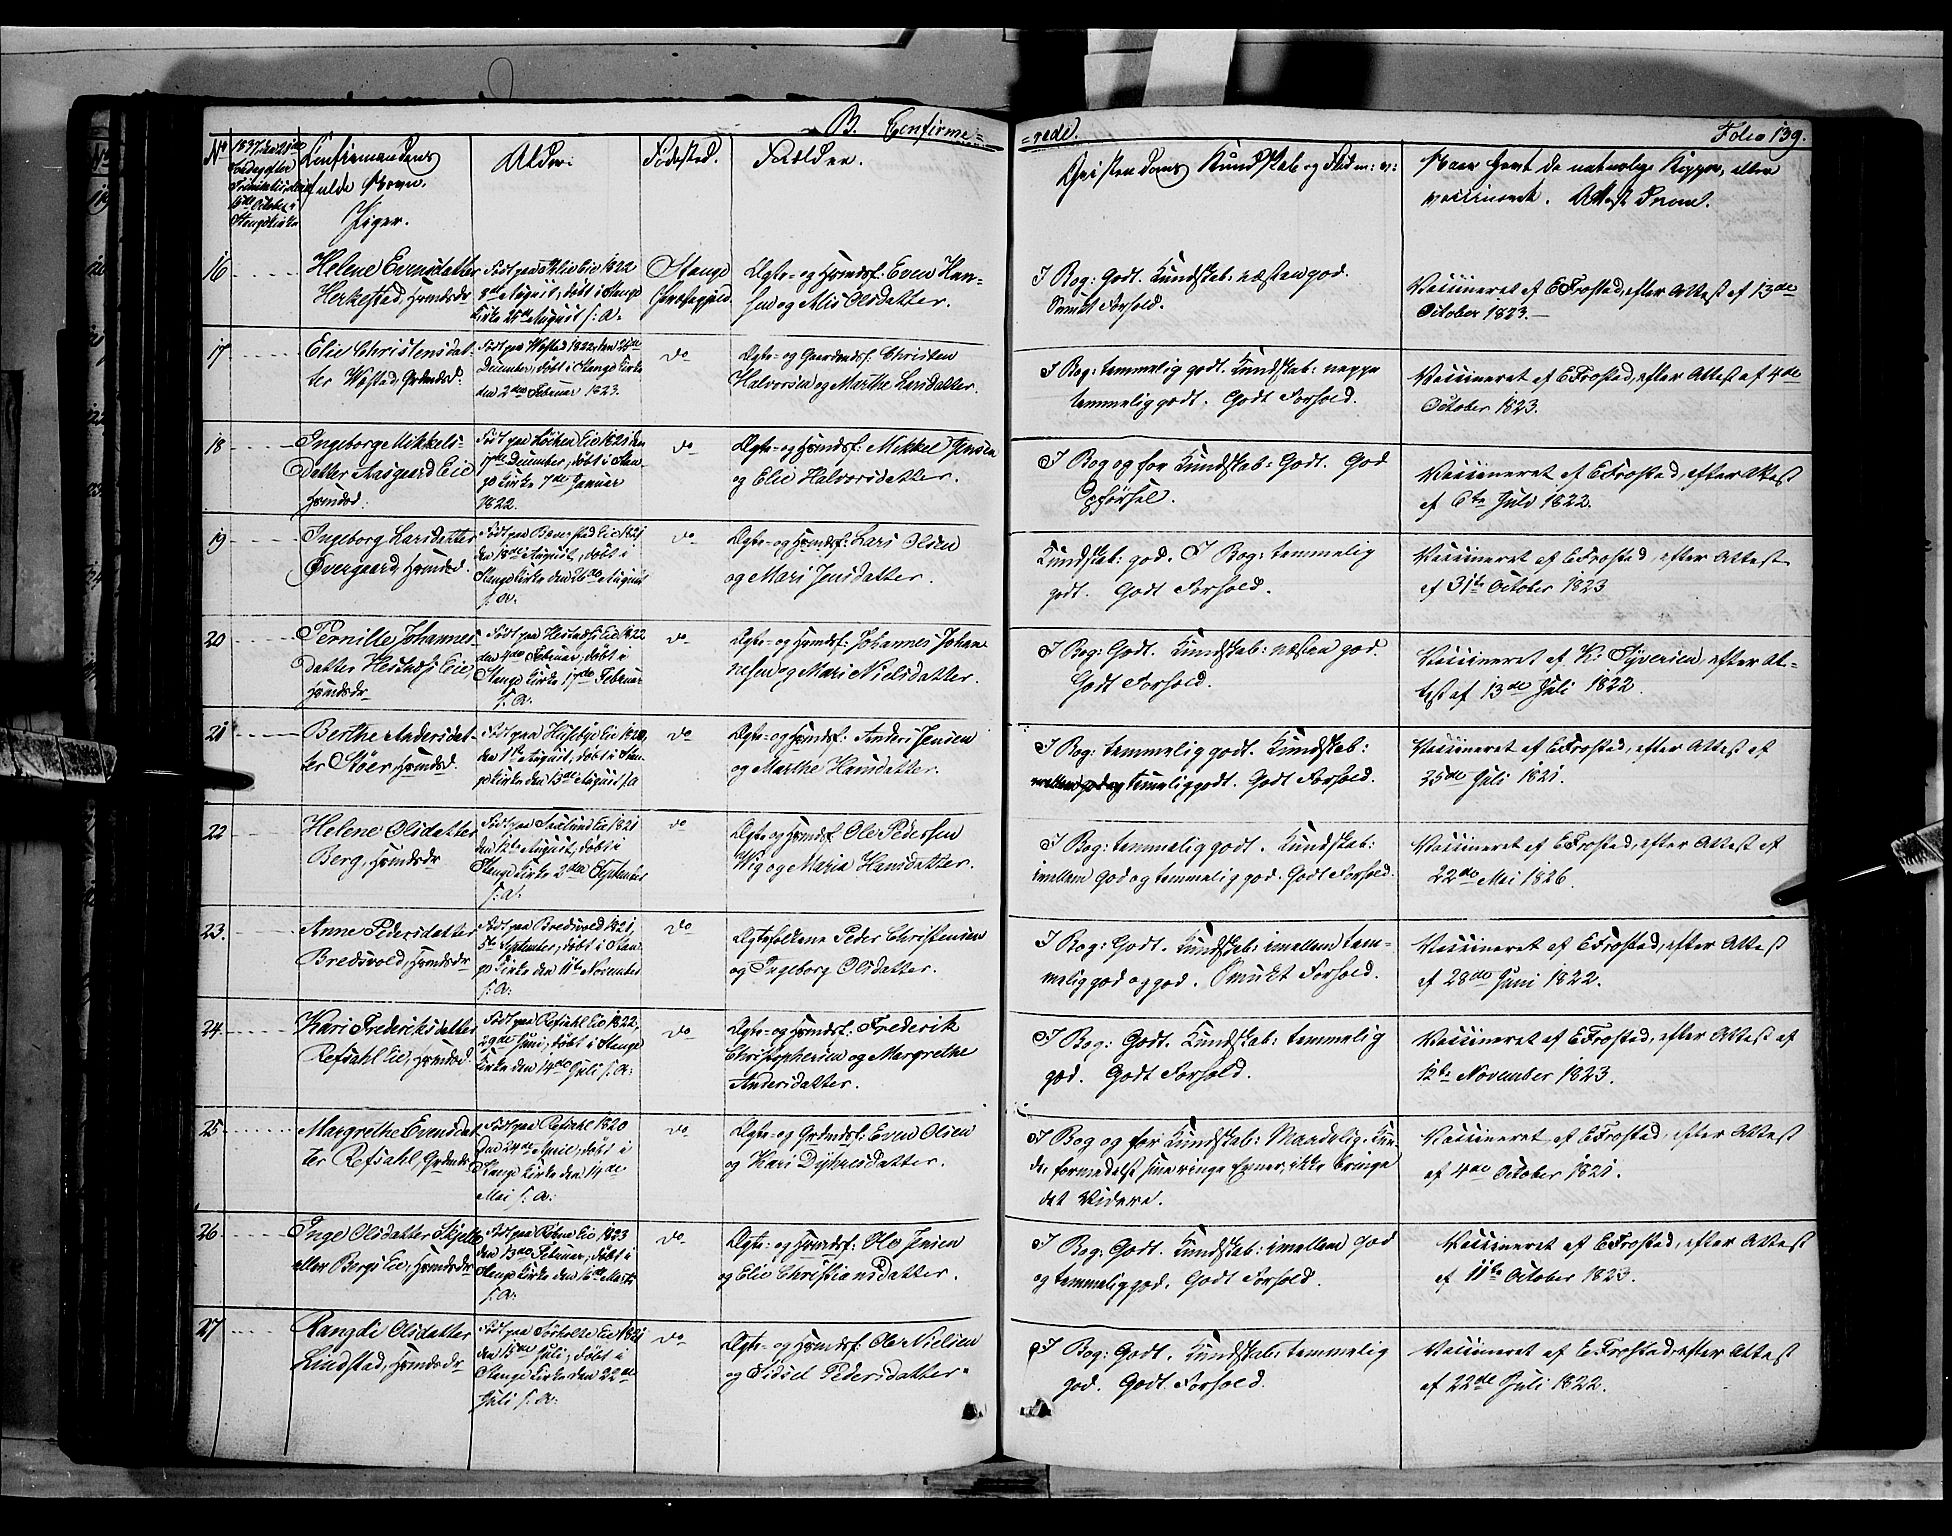 B. Confirme=
=rede.
Folio 139.
No
1837, den 21de
Søndag efter
Trinitatis, den
15de October i
Stange Kirke
Confirmandens
fulde Navn.
Piger.
Alder.
Fødested.
Forældre.
Christendoms Kundskab og Flid m: v:
Naar havt de naturlige Kopper, eller
vaccineret. Attest From.
16
Helene Evensdatter
Herkestad, Huusmdsdr
Eie 1822
8de August, døbt i Stange
Kirke 25de August s: A:
Stange
Præstegjeld.
Ægte- og Huusmdsf: Even Han-
sen og Mis Olsdatter.
I Bog: Godt. Kundskab: næsten god.
Smukt Forhold.
Vaccineret af E Frostad, efter Attest af 13de
October 1823.
17
Elie Christensdat-
ter Wøstad, Grdmdsd:
Født paa Wøstad 1822, den 25de
December, døbt i Stange Kirke
den 2den Februar 1823.
do
Ægte- og Gaardmdsf: Christen
Halvorsen og Marthe Larsdatter.
I Bog: temmelig godt. Kundskab: neppe
temmelig godt. Godt Forhold.
Vaccineret af E Frostad, efter Attest af 4de
October 1823.
18
Ingeborg Mikkels-
datter Aasgaard Eie
Huusmdsd.
Født paa Løken Eie 1821 den
17de December, døbt i Stan-
ge Kirke 7de Januar
1822.
do
Ægte- og Huusmdsf: Mikkel Jensen
og Elie Halvorsdatter.
I Bog og for Kundskab: Godt. God
Opførsel.
Vaccineret af E Frostad, efter Attest
af 6te Juli 1822.
19
Ingeborg Larsdatter
Øvergaard, Huusmdsd.
Født paa Beverstad Eie 1821
den 18de August, døbt i
Stange Kirke den 26de August
s: A:
do
Ægte- og Huusmdsf: Lars Olsen
og Mari Jensdatter.
Kundskab: god. I Bog: temmelig
godt. Godt Forhold.
Vaccineret af E Frostad, efter Attest
af 31te October 1823
20
Pernille Johannes-
datter Hestnæs Eie,
Huusmdsdr
Født paa Hestnæs Eie 1822
den 4de Februar, døbt i
Stange Kirke 17de Februar
s: A:
do
Ægte- og Huusmdsf: Johannes Johan
nesen og Mari Nielsdatter.
I Bog: Godt. Kundskab: næsten god.
Godt Forhold.
Vaccineret af K: Syversen, efter At-
test af 13de Juli 1822.
21
Berthe Andersdat-
ter Støer, Huusmdsd.
Født paa Huseby Eie 1820,
den 1ste August, døbt i Stan-
ge Kirke den 13de August s: A
do
Ægte- og Huusmdsf: Anders Jensen
og Marthe Hansdatter.
I Bog: temmelig godt. Kundskab:
mellem god og temmelig godt. Godt Forhold.
Vaccineret af E Frostad, efter Attest af
25de Juli 1821.
22
Helene Olsdatter
Berg, Huusmdsdr
Født paa Saxlund Eie 1821
den 12te August, døbt i
Stange Kirke 2den September
s: A:
do
Ægte- og Huusmdsf: Ole Pedersen
Wig og Maria Hansdatter.
I Bog: temmelig godt. Kundskab:
imellem god og temmelig god. Godt Forhold.
Vaccineret af E Frostad, efter Attest af
22de Mai 1826.
23.
Anne Pedersdatter
Bredsvold, Huusmdsdr
Født paa Bredsvold 1821,
5te September, døbt i Stan-
ge Kirke den 11te November
s: A:
do
Ægtefolkene Peder Christensen
og Ingeborg Olsdatter.
I Bog: Godt. Kundskab: imellem tem-
melig god og god. Smukt Forhold.
Vaccineret af E Frostad, efter Attest
af 28de Juni 1822.
24.
Kari Frederiksdatter
Refsahl Eie, Huusmdsd.
Født paa Refsahl Eie 1822,
29de Juni, døbt i Stange
Kirke den 14de Juli s: A:
do
Ægte- og Huusmdsf: Frederik
Christophersen og Margrethe
Andersdatter.
I Bog: Godt. Kundskab: temmelig
god. Godt Forhold.
Vaccineret af E Frostad, efter Attest af
12te November 1823.
25
Margrethe Evensdat
ter Refsahl, Grdmdsdr
Født paa Refsahl 1820
den 24de April, døbt i
Stange Kirke den 14de
Mai s: A:
do
Ægte- og Grdmdsf: Even Olsen
og Kari Dyhresdatter.
I Bog og for Kundskab: Maadelig. Kun-
de, formedelst sine ringe Evner, ikke bringe
det videre.
Vaccineret af E Frostad, efter Attest
af 4de October 1821.
26
Inge Olsdatter Skjelle
eller Bergs Eie, Huusmdsdr
Født paa Røbne Eie 1823
den 13de Februar, døbt i
Stange Kirke den 16de Marts
s: A:
do
Ægte- og Huusmdsf: Ole Jensen
og Elie Christiansdatter.
I Bog: Godt. Kundskab: imellem god
og temmelig god. Godt Forhold.
Vaccineret af E Frostad, efter Attest
af 11te October 1823.
27
Rangdi Olsdatter
Lindstad, Huusmdsdr
Født paa Sørholte Eie 1821
den 15de Juli, døbt i
Stange Kirke den 22de
Juli s: A:
do
Ægte- og Huusmdsf: Ole Nielsen
og Sidsel Pedersdatter.
I Bog: Godt. Kundskab: temmelig
god. Godt Forhold.
Vaccineret af E Frostad, efter Attest
af 22de Juli 1822.